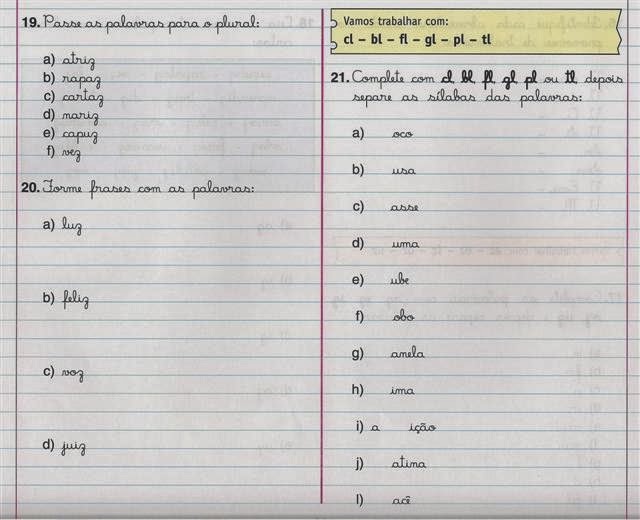 19. Passe as palavras para o plural:
a) atriz
b) rapaz
c) cartaz
d) nariz
e) capuz
f) vez
20. Forme frases com as palavras:
a) luz
b) feliz
c) voz
d) juiz
Vamos trabalhar com:
cl – bl – fl – gl – pl – tl
21. Complete com cl, bl, fl, gl, pl ou tl, depois
separe as sílabas das palavras:
a) oco
b) usa
c) asse
d) uma
e) ube
f) obo
g) anela
h) ima
i) a ição
j) atina
l) acê